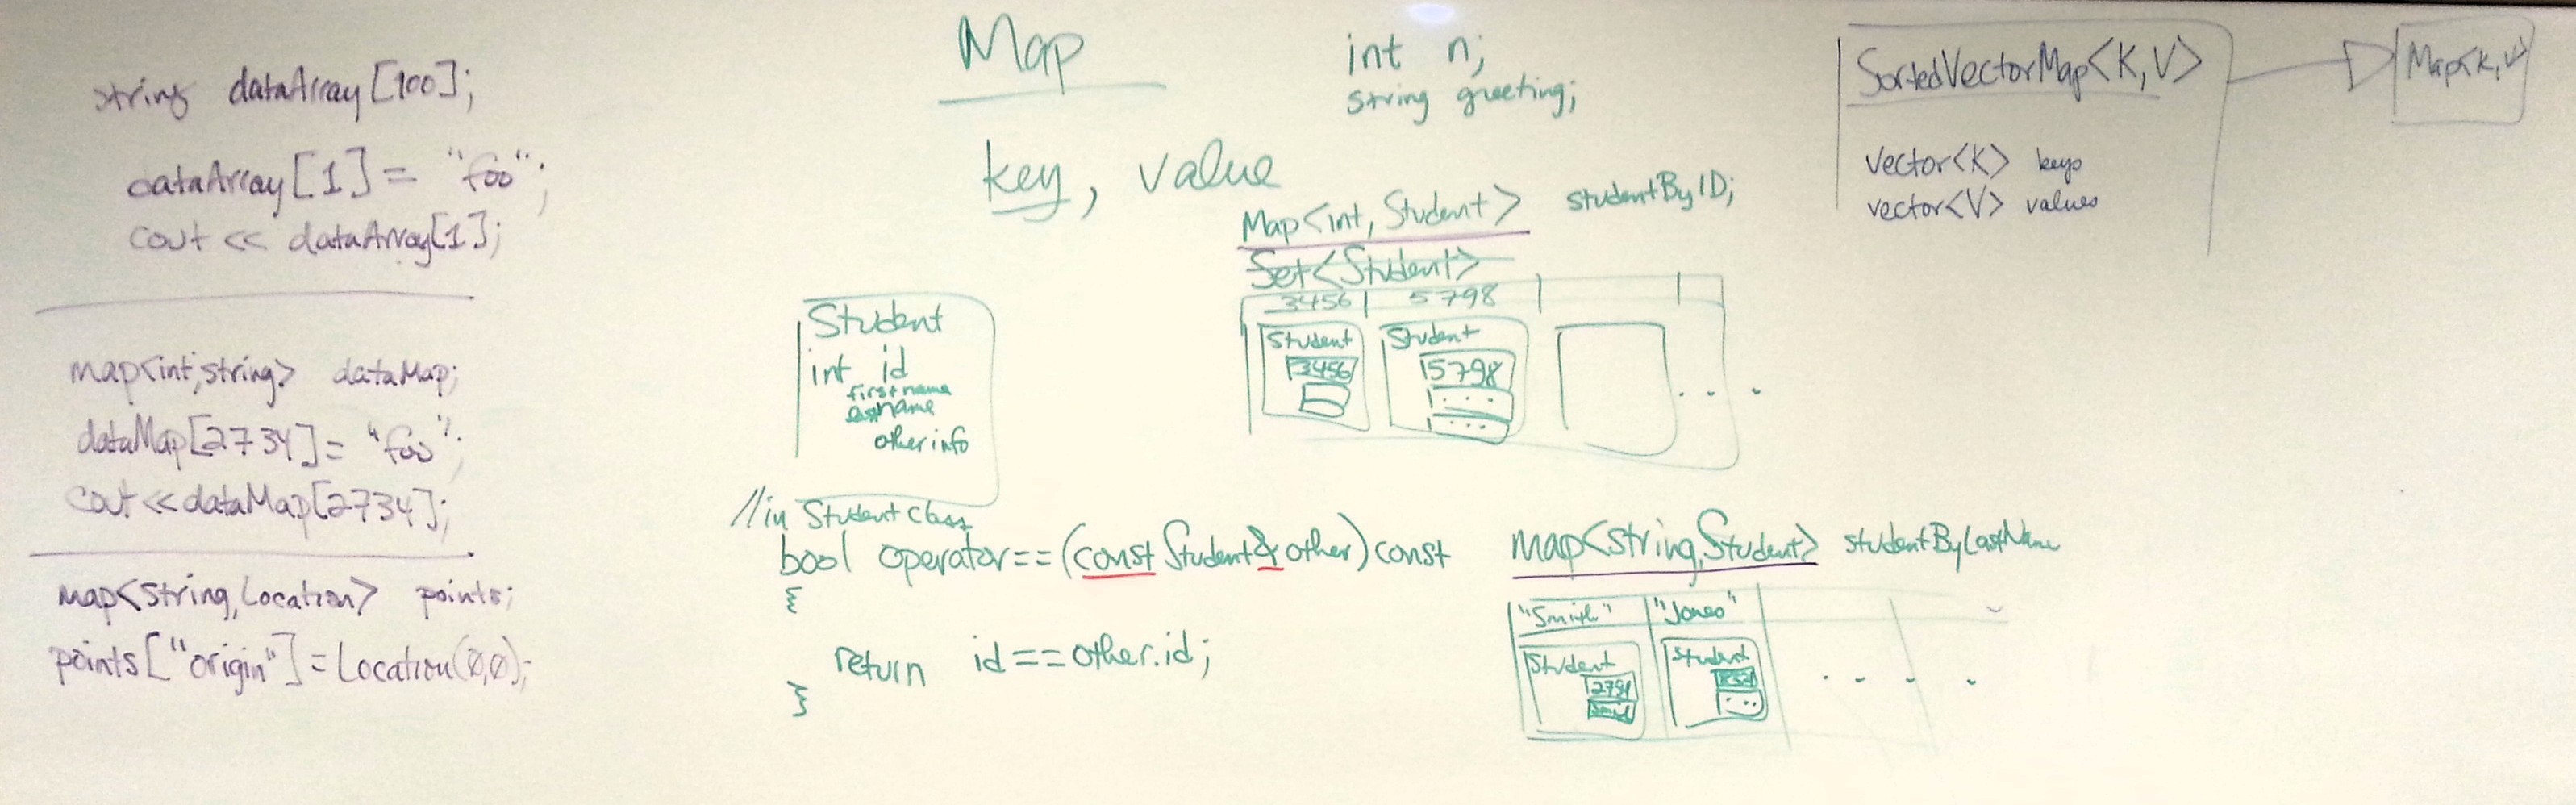 string dataArray[100];
dataArray[1] = "foo";
cout << dataArray[1];
map<int,string> dataMap;
dataMap[2734] = "foo";
cout << dataMap[2734];
map<string,Location> points;
points["origin"]=Location(0,0);
Map
key, value
int n;
string greeting;
Map<int, Student> studentByID;
Set<Student>
3456 5798
Student Student
3456 5798
Student
int id
firstname
lastname
other info
//in Student class
bool operator==(const Student& other) const
{
return id==other.id;
}
map<string,Student> studentByLastName
"Smith" "Jones"
Student Student
Smith
SortedVectorMap<K,V>
vector<K> keys
vector<V> values
Map<K,V>